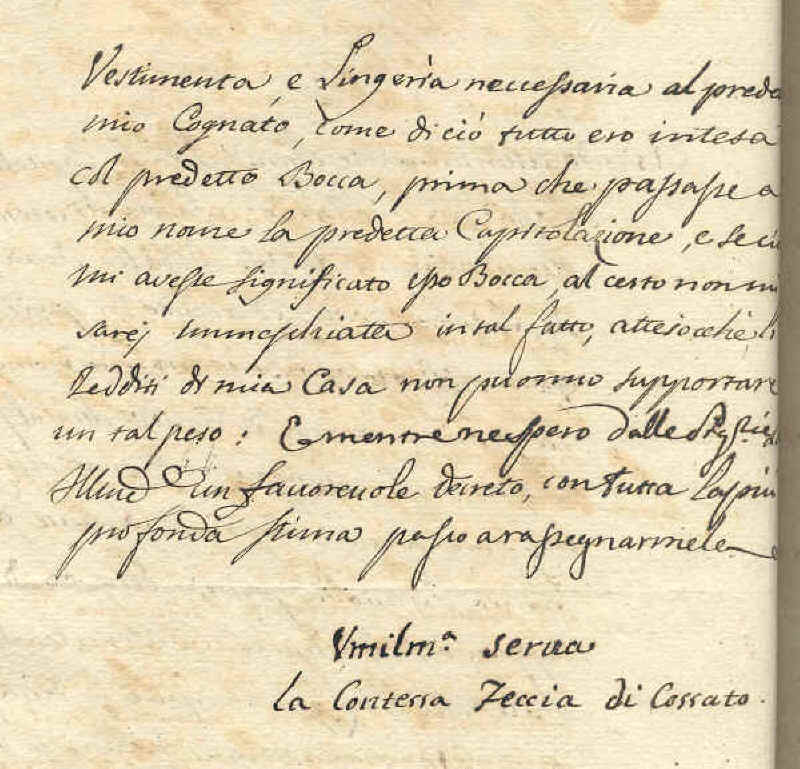 Vestimenta, e Lingeria necessaria al pred
mio Cognato, come di ciò tutto ero intesa
col predetto Bocca, prima che passasse a
mio nome la predetta Capitolazione, e se ciò
mi avesse significato esso Bocca, al certo non mi
sarej immeschiata in tal fatto, attesocché li
Redditi di mia Casa non puonno supportare
un tal peso: E mentre ne spero dalle
un favorevole decreto, con tutta la più
profonda stima passo a rassegnarmele
Umilm.ª serva
la Contessa Feccia di Cossato.